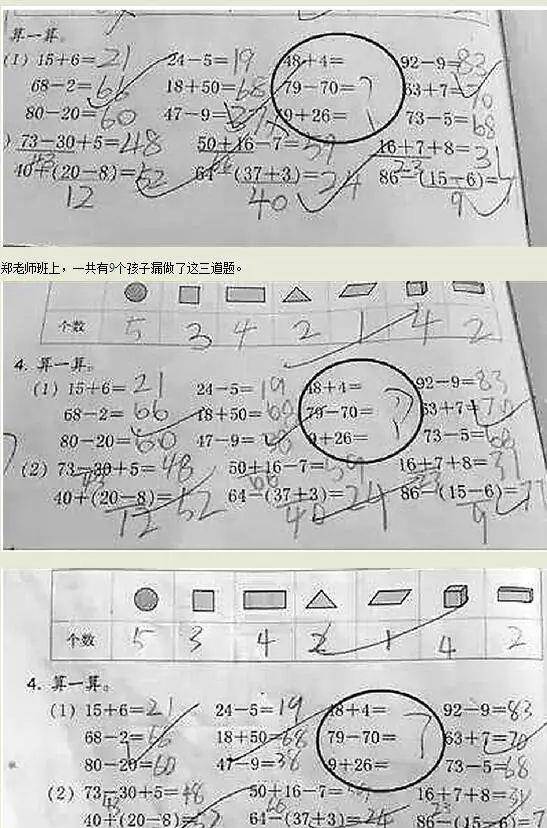 算一算。
(1) 15+6=21 24-5=19 48+4= 92-9=83
68-2=66 18+50=68 79-70= 63+7=70
80-20=60 47-9= 9+26= 73-5=68
) 73-30+5=48 50+16-7=59 16+7+8=31
43 23
40+(20-8)=52 64-(37+3)=24 86-(15-6)=
12 40 9
郑老师班上，一共有9个孩子漏做了这三道题。
个数 5 3 4 2 1 4 2
4. 算一算。
(1) 15+6=21 24-5=19 48+4= 92-9=83
68-2=66 18+50=68 79-70= 63+7=70
80-20=60 47-9= 9+26= 73-5=68
(2) 73-30+5=48 50+16-7=59 16+7+8=31
43 66 23
40+(20-8)=52 64-(37+3)=24 86-(15-6)=77
12 40 9
个数 5 3 4 2 1 4 2
4. 算一算。
(1) 15+6=21 24-5=19 48+4= 92-9=83
68-2=66 18+50=68 79-70= 63+7=70
80-20=60 47-9=38 9+26= 73-5=68
(2) 73-30+5=48 50+16-7= 16+7+8=31
43 66 23
40+(20-8)=52 64-(37+3)=24 86-(15-6)=7